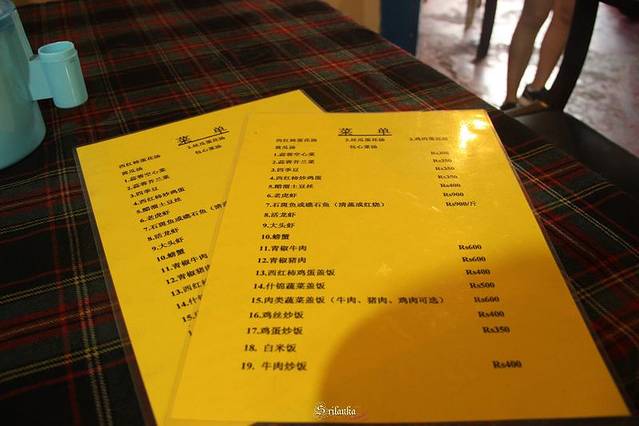 菜 单
西红柿蛋花汤
2.丝瓜蛋花汤
黄瓜汤
包心菜汤
1.蒜蓉空心菜
2.蒜蓉芥兰菜
3.四季豆
4.西红柿炒鸡蛋
5.醋溜土豆丝
6.老虎虾
7.石斑鱼或礁石鱼（清
8.活龙虾
9.大头虾
10.螃蟹
11.青椒牛肉
12.青椒猪肉
13.西红柿
14.什锦
菜 单
西红柿蛋花汤 2.丝瓜蛋花汤 3.鸡肉蛋花汤
黄瓜汤 包心菜汤
1.蒜蓉空心菜 Rs300
2.蒜蓉芥兰菜 Rs350
3.四季豆 Rs350
4.西红柿炒鸡蛋 Rs350
5.醋溜土豆丝 Rs400
6.老虎虾 Rs900
7.石斑鱼或礁石鱼（清蒸或红烧） Rs900/斤
8.活龙虾
9.大头虾
10.螃蟹
11.青椒牛肉 Rs600
12.青椒猪肉 Rs600
13.西红柿鸡蛋盖饭 Rs400
14.什锦蔬菜盖饭 Rs500
15.肉类蔬菜盖饭（牛肉、猪肉、鸡肉可选） Rs600
16.鸡丝炒饭 Rs400
17.鸡蛋炒饭 Rs350
18. 白米饭
19. 牛肉炒饭 Rs400
Srilanka